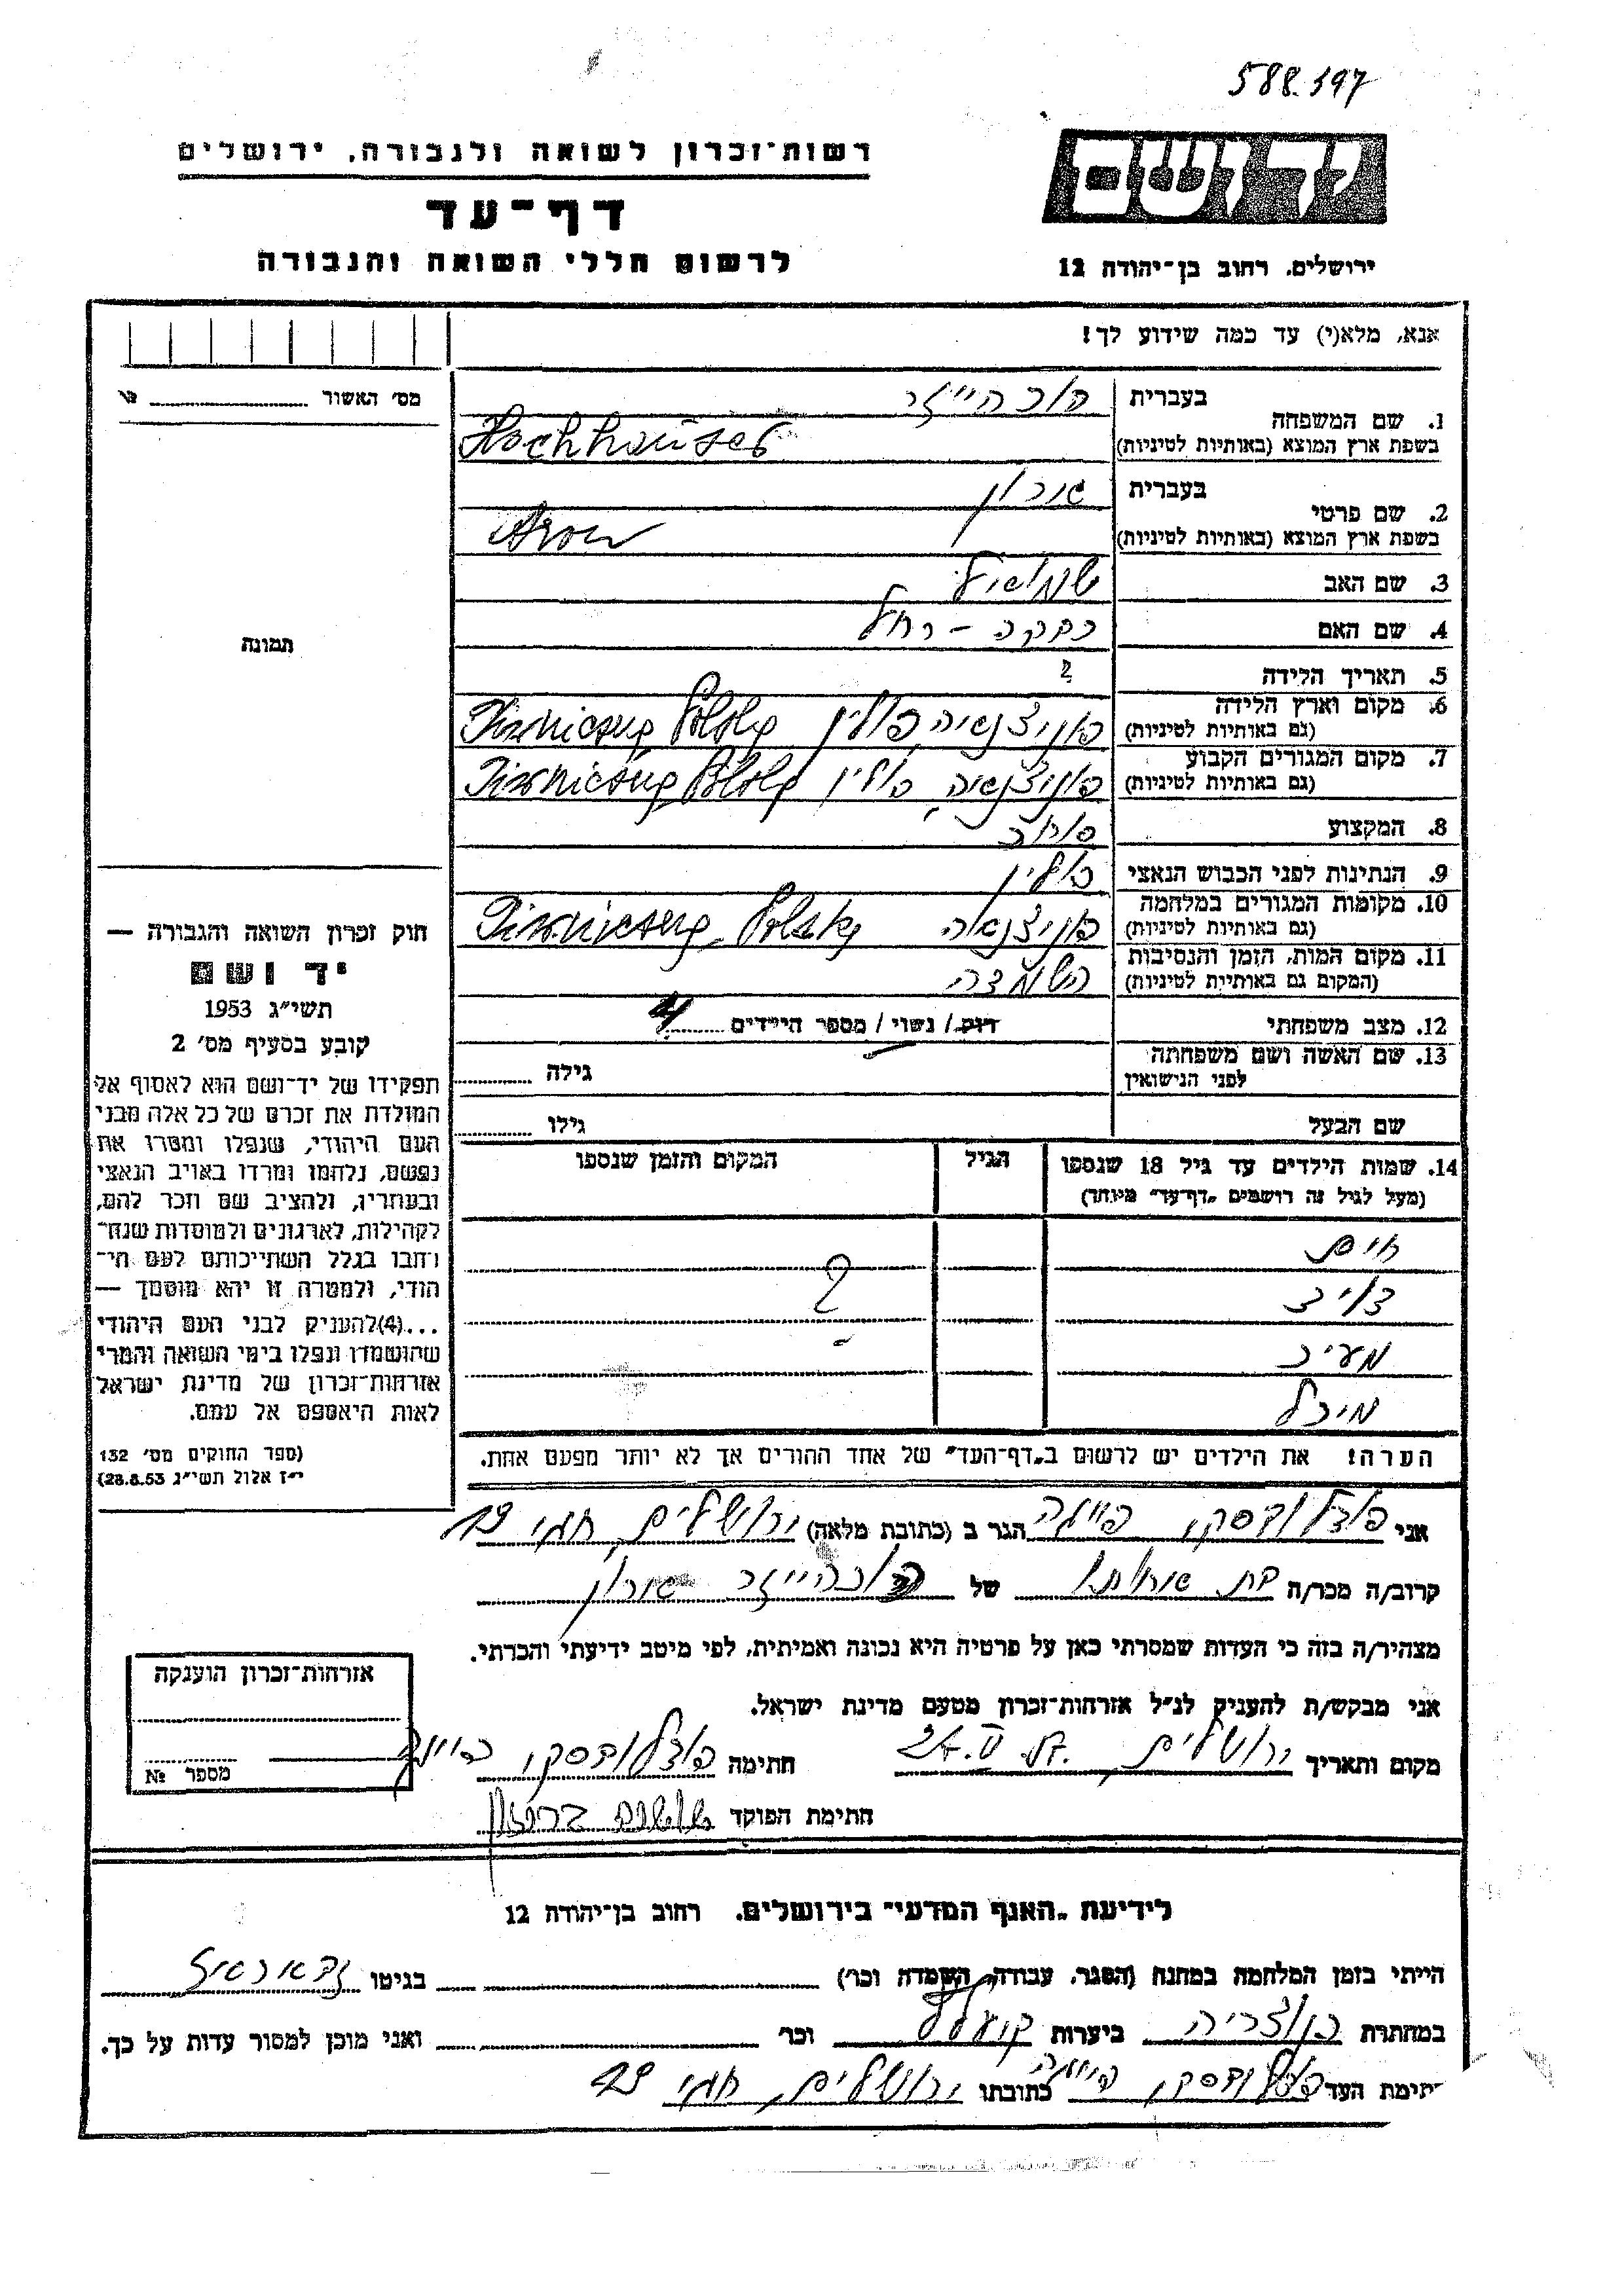 588.197
יד ושם
ירושלים. רחוב בן־יהודה 12
רשות־זכרון לשואה ולגבורה. ירושלים
דף־עד
לרשום חללי השואה והגבורה
אנא, מלא(י) עד כמה שידוע לך!
1. שם המשפחה
בעברית הוכהייזר
בשפת ארץ המוצא (באותיות לטיניות) Hochhauser
2. שם פרטי
בעברית אהרון
בשפת ארץ המוצא (באותיות לטיניות) Aron
3. שם האב שמואל
4. שם האם רבקה - רחל
5. תאריך הלידה ?
6. מקום וארץ הלידה
(גם באותיות לטיניות) פולין Polska
7. מקום המגורים הקבוע
(גם באותיות לטיניות) פולין Polska
8. המקצוע סוחר
9. הנתינות לפני הכבוש הנאצי פולין
10. מקומות המגורים במלחמה
(גם באותיות לטיניות) Polska
11. מקום המות, הזמן והנסיבות
(המקום גם באותיות לטיניות) השמדה
12. מצב משפחתי רווק / נשוי / מספר הילדים 4
13. שם האשה ושם משפחתה
לפני הנישואין גילה
שם הבעל גילו
14. שמות הילדים עד גיל 18 שנספו הגיל המקום והזמן שנספו
(מעל לגיל זה רושמים „דף־עד” מיוחד)
חיים
?
מיכל
הערה! את הילדים יש לרשום ב„דף־העד” של אחד ההורים אך לא יותר מפעם אחת.
מס׳ האשור №
תמונה
חוק זכרון השואה והגבורה —
יד ושם
תשי״ג 1953
קובע בסעיף מס׳ 2
תפקידו של יד־ושם הוא לאסוף אל
המולדת את זכרם של כל אלה מבני
העם היהודי, שנפלו ומסרו את
נפשם, נלחמו ומרדו באויב הנאצי
ובעוזריו, ולהציב שם וזכר להם,
לקהילות, לארגונים ולמוסדות שנח־
רבו בגלל השתייכותם לעם הי־
הודי, ולמטרה זו יהא מוסמך —
...(4) להעניק לבני העם היהודי
שהושמדו ונפלו בימי השואה והמרי
אזרחות־זכרון של מדינת ישראל
לאות היאספם אל עמם.
(ספר החוקים מס׳ 132
י״ז אלול תשי״ג 28.8.53)
אני הגר ב (כתובת מלאה) ירושלים, חגי
קרוב/ה מכר/ה בת אחותו של הוכהייזר אהרון
מצהיר/ה בזה כי העדות שמסרתי כאן על פרטיה היא נכונה ואמיתית, לפי מיטב ידיעתי והכרתי.
אני מבקש/ת להעניק לנ״ל אזרחות־זכרון מטעם מדינת ישראל.
מקום ותאריך ירושלים חתימה
חתימת הפוקד
אזרחות־זכרון הוענקה
מספר №
לידיעת „האגף המדעי” בירושלים. רחוב בן־יהודה 12
הייתי בזמן המלחמה במחנה (הסגר, עבודה, השמדה וכו׳) בגיטו
במחתרת ביערות וכו׳ ואני מוכן למסור עדות על כך.
חתימת העד כתובתו ירושלים, חגי